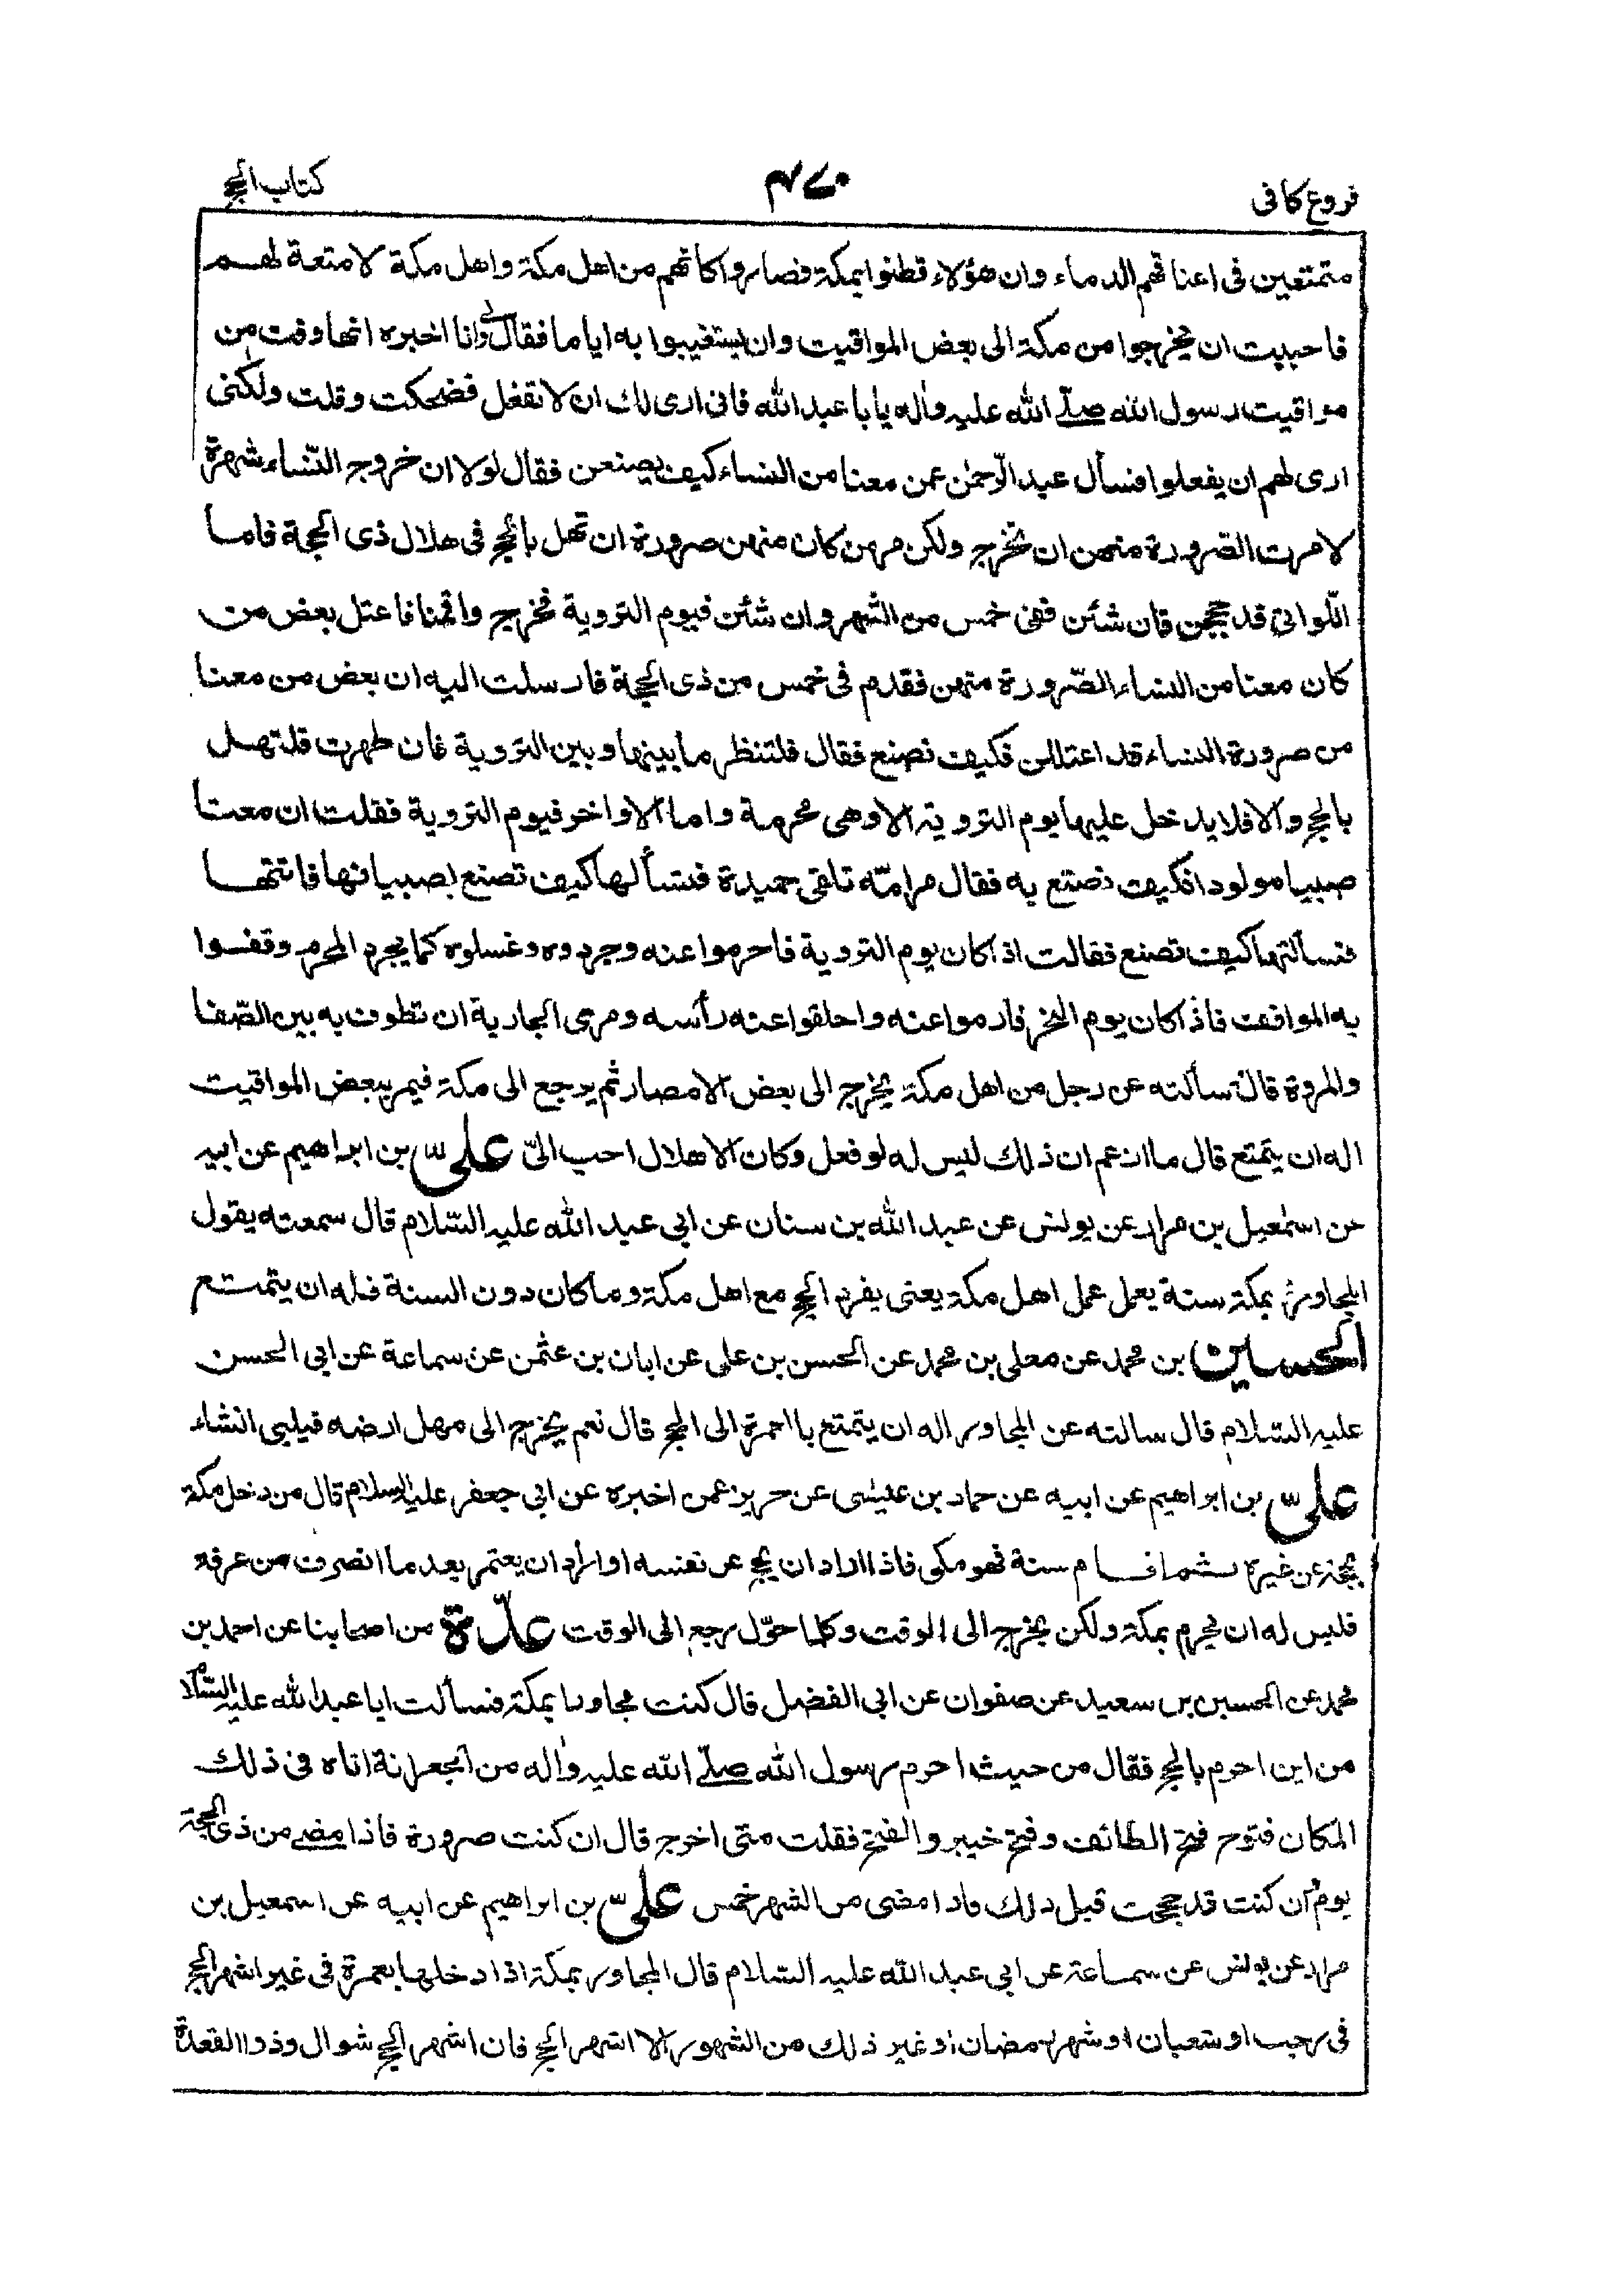 فروع کافی
۴۷۰
کتاب الحج
متمتعین فی اعناقهم الدماء وان هؤلاء قطنوا بمکة فصاروا کانهم من اهل مکة واهل مکة لا متعة لهم
فاحببت ان یخرجوا من مکة الی بعض المواقیت وان یستغیبوا به ایاما فقال لی وانا اخبره انها وقت من
مواقیت رسول الله صلے الله علیه واٰله یابا عبد الله فانی اری لك ان لا تفعل فضحکت وقلت ولکنی
اری لهم ان یفعلوا فسأل عبد الرّحمٰن عمن معنا من النساء کیف یصنعن فقال لولا ان خروج النّساء شهرة
لامرت الصّرورة منهن ان تخرج ولکن مر من کان منهن صرورة ان تهل بالحج فی هلال ذی الحجة فاما
اللّواتی قد حججن فان شئن ففی خمس من الشهر وان شئن فیوم الترویة فخرج واقمنا فاعتل بعض من
کان معنا من النساء الصّرورة منهن فقدم فی خمس من ذی الحجة فارسلت الیه ان بعض من معنا
من صرورة النساء قد اعتللن فکیف تصنع فقال فلتنظر ما بینها وبین الترویة فان طهرت فلتهل
بالحج والا فلا یدخل علیها یوم الترویة الا وهی محرمة واما الاواخر فیوم الترویة فقلت ان معنا
صبیا مولودا فکیف نصنع به فقال مر امّه تلقی حمیدة فتسألها کیف تصنع بصبیانها فاتتها
فسألتها کیف تصنع فقالت اذا کان یوم الترویة فاحرموا عنه وجردوه وغسلوه کما یجرد المحرم وقفوا
به المواقف فاذا کان یوم النحر فارموا عنه واحلقوا عنه رأسه ومری الجاریة ان تطوف به بین الصّفا
والمروة قال سألته عن رجل من اهل مکة یخرج الی بعض الامصار ثم یرجع الی مکة فیمر ببعض المواقیت
اله ان یتمتع قال ما ازعم ان ذلك لیس له لو فعل وکان الاهلال احب الیّ علیّ بن ابراهیم عن ابیه
عن اسمٰعیل بن مرار عن یونس عن عبد الله بن سنان عن ابی عبد الله علیه السّلام قال سمعته یقول
المجاور بمکة سنة یعمل عمل اهل مکة یعنی یفرد الحج مع اهل مکة وما کان دون السنة فله ان یتمتع
الحسین بن محمد عن معلی بن محمد عن الحسن بن علی عن ابان بن عثمٰن عن سماعة عن ابی الحسن
علیه السّلام قال سالته عن المجاور اله ان یتمتع بالعمرة الی الحج قال نعم یخرج الی مهل ارضه فیلبی انشاء
علیّ بن ابراهیم عن ابیه عن حماد بن عیسٰی عن حریز عمن اخبره عن ابی جعفر علیه السلام قال من دخل مکة
بحجة عن غیره ثم اقام سنة فهو مکی فاذا اراد ان یحج عن نفسه او اراد ان یعتمر بعد ما انصرف من عرفة
فلیس له ان یحرم بمکة ولکن یخرج الی الوقت وکلما حوّل رجع الی الوقت عدّة من اصحابنا عن احمد بن
محمد عن الحسین بن سعید عن صفوان عن ابی الفضل قال کنت مجاورا بمکة فسألت ابا عبد الله علیه السّلام
من این احرم بالحج فقال من حیث احرم رسول الله صلّے الله علیه واٰله من الجعرانة اتاه فی ذلك
المکان فتوح فتح الطائف وفتح خیبر والفتح فقلت متی اخرج قال ان کنت صرورة فاذا مضے من ذی الحجة
یوم ان کنت قد حججت قبل ذلك فاذا مضی من الشهر خمس علیّ بن ابراهیم عن ابیه عن اسمعیل بن
مرار عن یونس عن سماعة عن ابی عبد الله علیه السّلام قال المجاور بمکة اذا دخلها بعمرة فی غیر اشهر الحج
فی رجب او شعبان او شهر رمضان او غیر ذلك من الشهور الا اشهر الحج فان اشهر الحج شوال وذوا القعدة